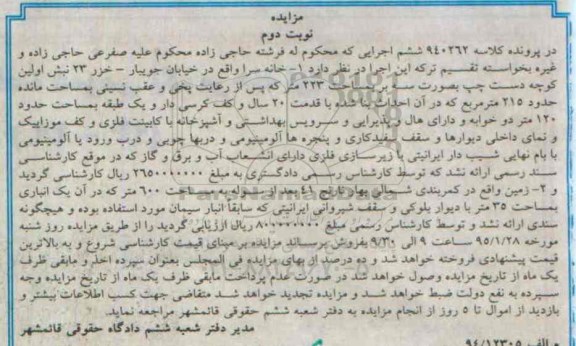 مزایده
نوبت دوم
در پرونده کلاسه ۹۴۰۲۶۲ ششم اجرایی که محکوم له فرشته حاجی زاده محکوم علیه صفرعی حاجی زاده و
غیره بخواسته تقسیم ترکه این اجرا در نظر دارد ۱- خانه سرا واقع در خیابان جویبار - خزر ۲۳ نبش اولین
کوچه دست چپ بصورت سه بر بمساحت ۲۲۳ متر که پس از رعایت پخی و عقب نشینی بمساحت مانده
حدود ۲۱۵ مترمربع که در آن احداث بنا شده با قدمت ۲۰ سال و کف کرسی دار و یک طبقه بمساحت حدود
۱۲۰ متر دو خوابه و دارای هال و پذیرایی و سرویس بهداشتی و آشپزخانه با کابینت فلزی و کف موزاییک
و نمای داخلی دیوارها و سقف سفیدکاری و پنجره ها آلومینیومی و دربها چوبی و درب ورود یا آلومینیومی
با بام نهایی شیب دار ایرانیتی با زیرسازی فلزی دارای انشعاب آب و برق و گاز که در موقع کارشناسی
سند رسمی ارائه نشد که توسط کارشناس رسمی دادگستری به مبلغ ۲۶۵۰۰۰۰۰۰۰ ریال کارشناسی گردید
و ۲- زمین واقع در کمربندی شمالی بهار نارنج ۴۱ بعد از لوله به مساحت ۶۰۰ متر که در آن یک انباری
بمساحت ۳۵ متر با دیوار بلوکی و سقف شیروانی ایرانیتی که سابقا انبار سیمان مورد استفاده بوده و هیچگونه
سندی ارائه نشد و توسط کارشناس رسمی مبلغ ۸۰۰۰۰۰۰۰۰۰ ریال ارزیابی گردید را از طریق مزایده روز شنبه
مورخه ۹۵/۱/۲۸ ساعت ۹ الی ۹/۳۰ بفروش برساند مزایده بر مبنای قیمت کارشناسی شروع و به بالاترین
قیمت پیشنهادی فروخته خواهد شد و ده درصد از بهای مزایده فی المجلس بعنوان سپرده اخذ و مابقی ظرف
یک ماه از تاریخ مزایده وصول خواهد شد در صورت عدم پرداخت مابقی ظرف یک ماه از تاریخ مزایده وجه
سپرده به نفع دولت ضبط خواهد شد و مزایده تجدید خواهد شد متقاضی جهت کسب اطلاعات بیشتر و
بازدید از اموال تا ۵ روز از انجام مزایده به دفتر شعبه ششم حقوقی قائمشهر مراجعه نماید.
مدیر دفتر شعبه ششم دادگاه حقوقی قائمشهر
م الف ۹۴/۱۲۳۰۵